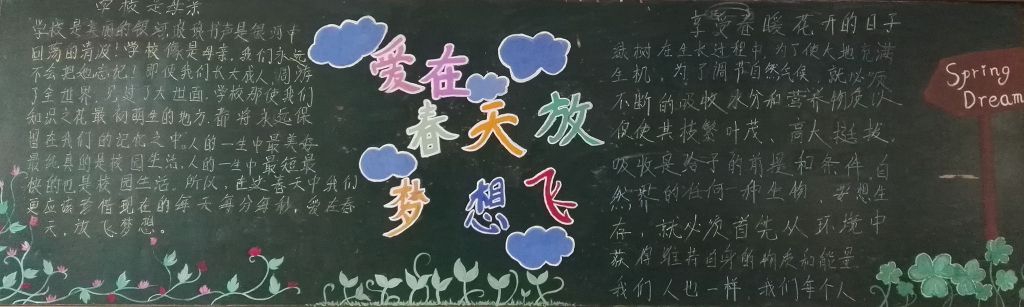 学校是母亲
学校是美丽的银河,读书声是银河中
回荡的清波!学校像是母亲,我们永远
不会把她忘记!即使我们长大成人,周游
了全世界,见过了大世面,学校那使我们
知识之花最初萌生的地方,都将永远保
留在我们的记忆之中。人的一生中最美好
最纯真的是校园生活。人的一生中最短最
快的也是校园生活。所以,在这春天中我们
更应该珍惜现在的每天每分每秒,爱在春
天,放飞梦想。
爱在
春天放
梦想飞
享受春暖花开的日子
绿树在生长过程中,为了使大地充满
生机,为了调节自然气候,就必须
不断的吸收水分和营养物质,以
促使其枝繁叶茂、高大挺拔。
吸收是给予的前提和条件,自
然界的任何一种生物,要想生
存,就必须首先从环境中
获得维持自身的物质和能量
我们人也一样,我们每个人
Spring
Dream